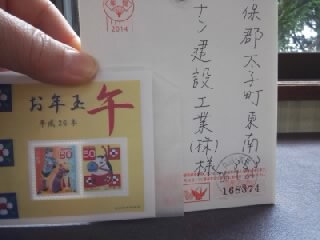 お年玉
午
平成26年
50
80
2014
保郡太子町東南
ナン建設工業(株)
様
168374